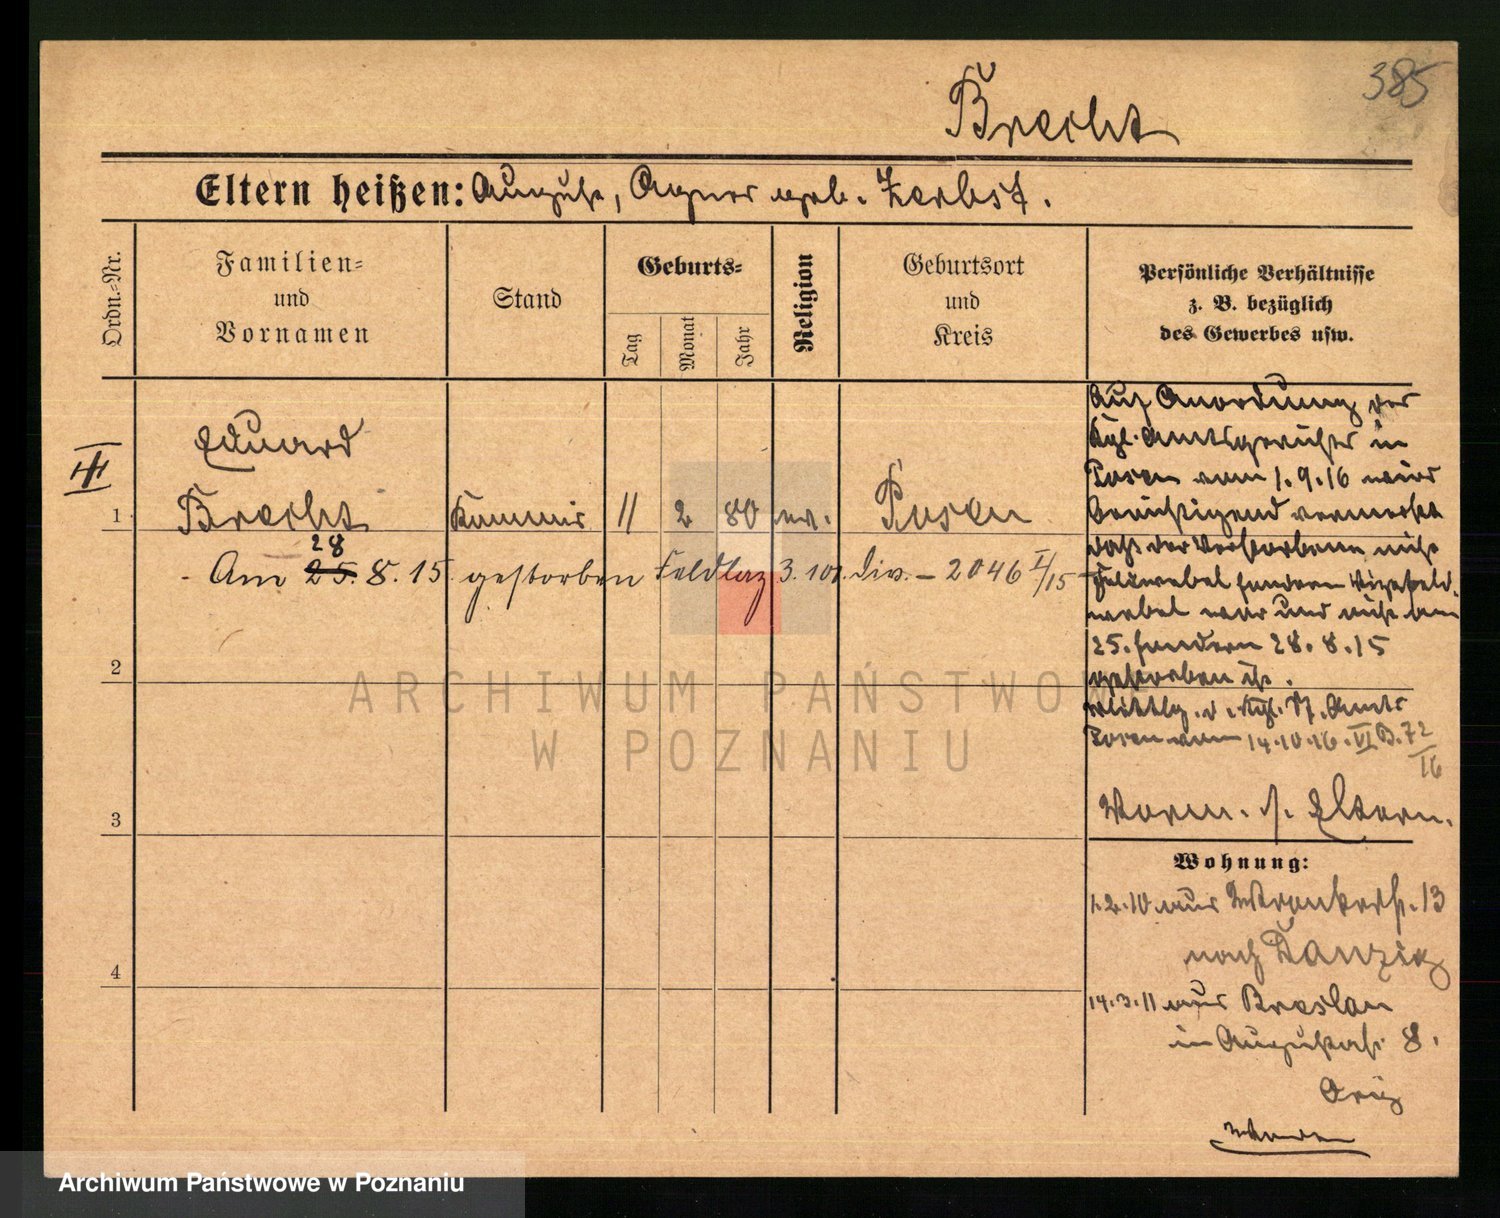 385
Brecht
Eltern heißen: August, Agnes geb. Zerbst.
Ordn.-Nr.
Familien-
und
Vornamen
Stand
Geburts-
Tag
Monat
Jahr
Religion
Geburtsort
und
Kreis
Persönliche Verhältnisse
z. B. bezüglich
des Gewerbes usw.
Eduard
1 Brecht Kommis 11 2 80 ev. Posen
28
Am 25. 8. 15 gestorben Feldlaz 3. 101. Div. – 2046 I/15
Auf Anordnung des
Kgl. Amtsgerichts in
Posen vom 1.9.16 wird
berichtigend vermerkt
daß der Verstorbene nicht
Feldwebel sondern Vizefeld-
webel war und nicht am
25. sondern 28. 8. 15
gestorben ist.
Mittlg. d. Kgl. St. Amts
Posen vom 14.10.16. VI B. 72/16
Vorm. s. Eltern.
2
3
4
Wohnung:
1.2.10 aus Wronkerstr. 13
nach Danzig
14.3.11 aus Breslau
in Augustastr. 8.
ARCHIWUM PAŃSTWOW
W POZNANIU
Archiwum Państwowe w Poznaniu